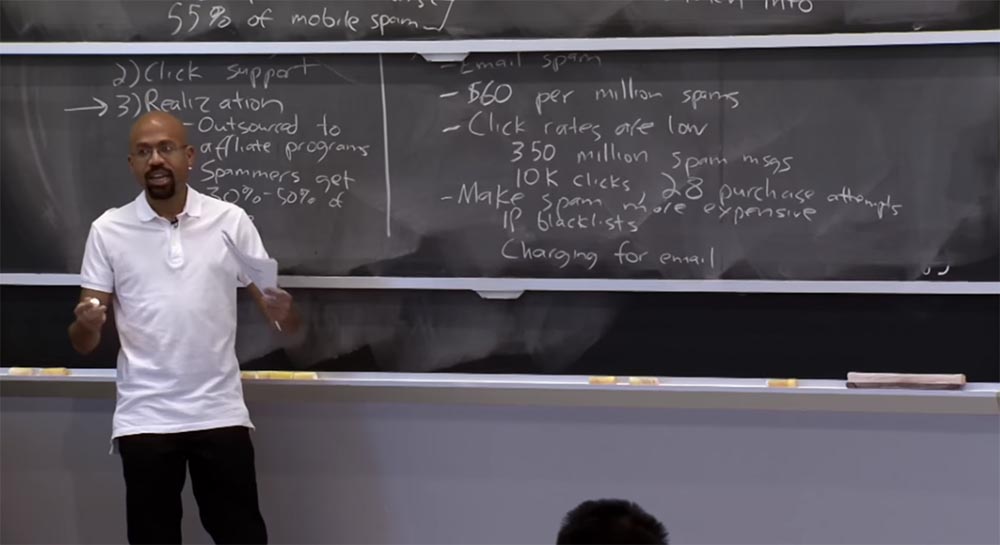 55% of mobile spam
into
2) Click support
→ 3) Realization
- Outsourced to
affiliate programs
Spammers get
30%-50% of
- Email spam
- $60 per million spams
- Click rates are low
350 million spam msgs
10K clicks, 28 purchase attempts
- Make spam more expensive
IP blacklists
Charging for email